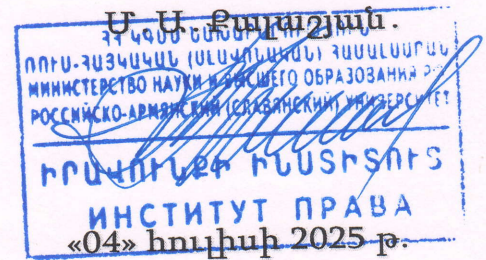 Մ. Ս. Քալաշյան.
ՌՈՒՍ-ՀԱՅԿԱԿԱՆ (ՍԼԱՎՈՆԱԿԱՆ) ՀԱՄԱԼՍԱՐԱՆ
МИНИСТЕРСТВО НАУКИ И ВЫСШЕГО ОБРАЗОВАНИЯ
РОССИЙСКО-АРМЯНСКИЙ (СЛАВЯНСКИЙ) УНИВЕРСИТЕТ
ԻՐԱՎՈՒՆՔԻ ԻՆՍՏԻՏՈՒՏ
ИНСТИТУТ ПРАВА
«04» հուլիսի 2025 թ.